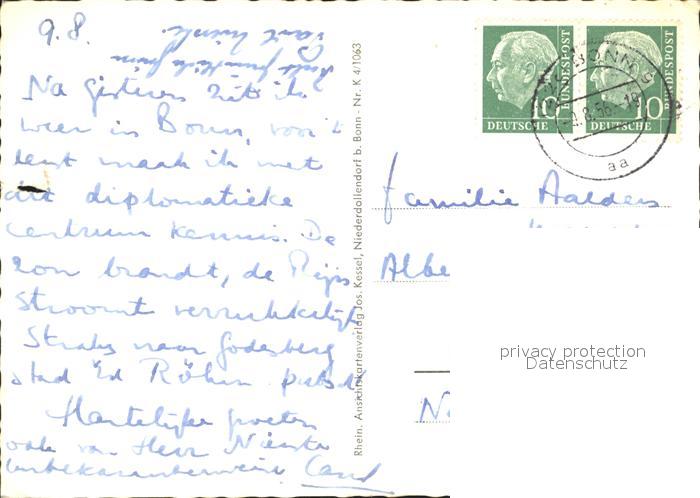 9.8.
Na gisteren zit ik
weer in Bonn, voor 't
eerst maak ik met
dit diplomatieke
centrum kennis. De
zon brandt, de Rijn
stroomt verrukkelijk
Straks naar Godesberg
stad
Hartelijke groeten
ook van Herr
unbekannterweise
Rhein. Ansichtskartenverlag Jos. Kessel, Niederdollendorf b. Bonn - Nr. K 4/1063
DEUTSCHE BUNDESPOST 10
DEUTSCHE BUNDESPOST 10
BONN
8.56.-18
aa
Familie Aalders
Albe
N
privacy protection
Datenschutz